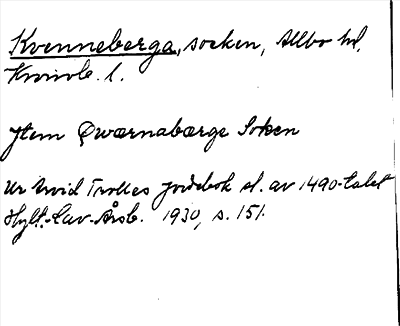 Kvenneberga, socken, Allbo hd,
Kronob. l.
Jtem Qwærnabærge Soken
Ur Arvid Trolles jordebok sl. av 1490-talet
Hylt.-Cav.-Årsb. 1930, s. 151.